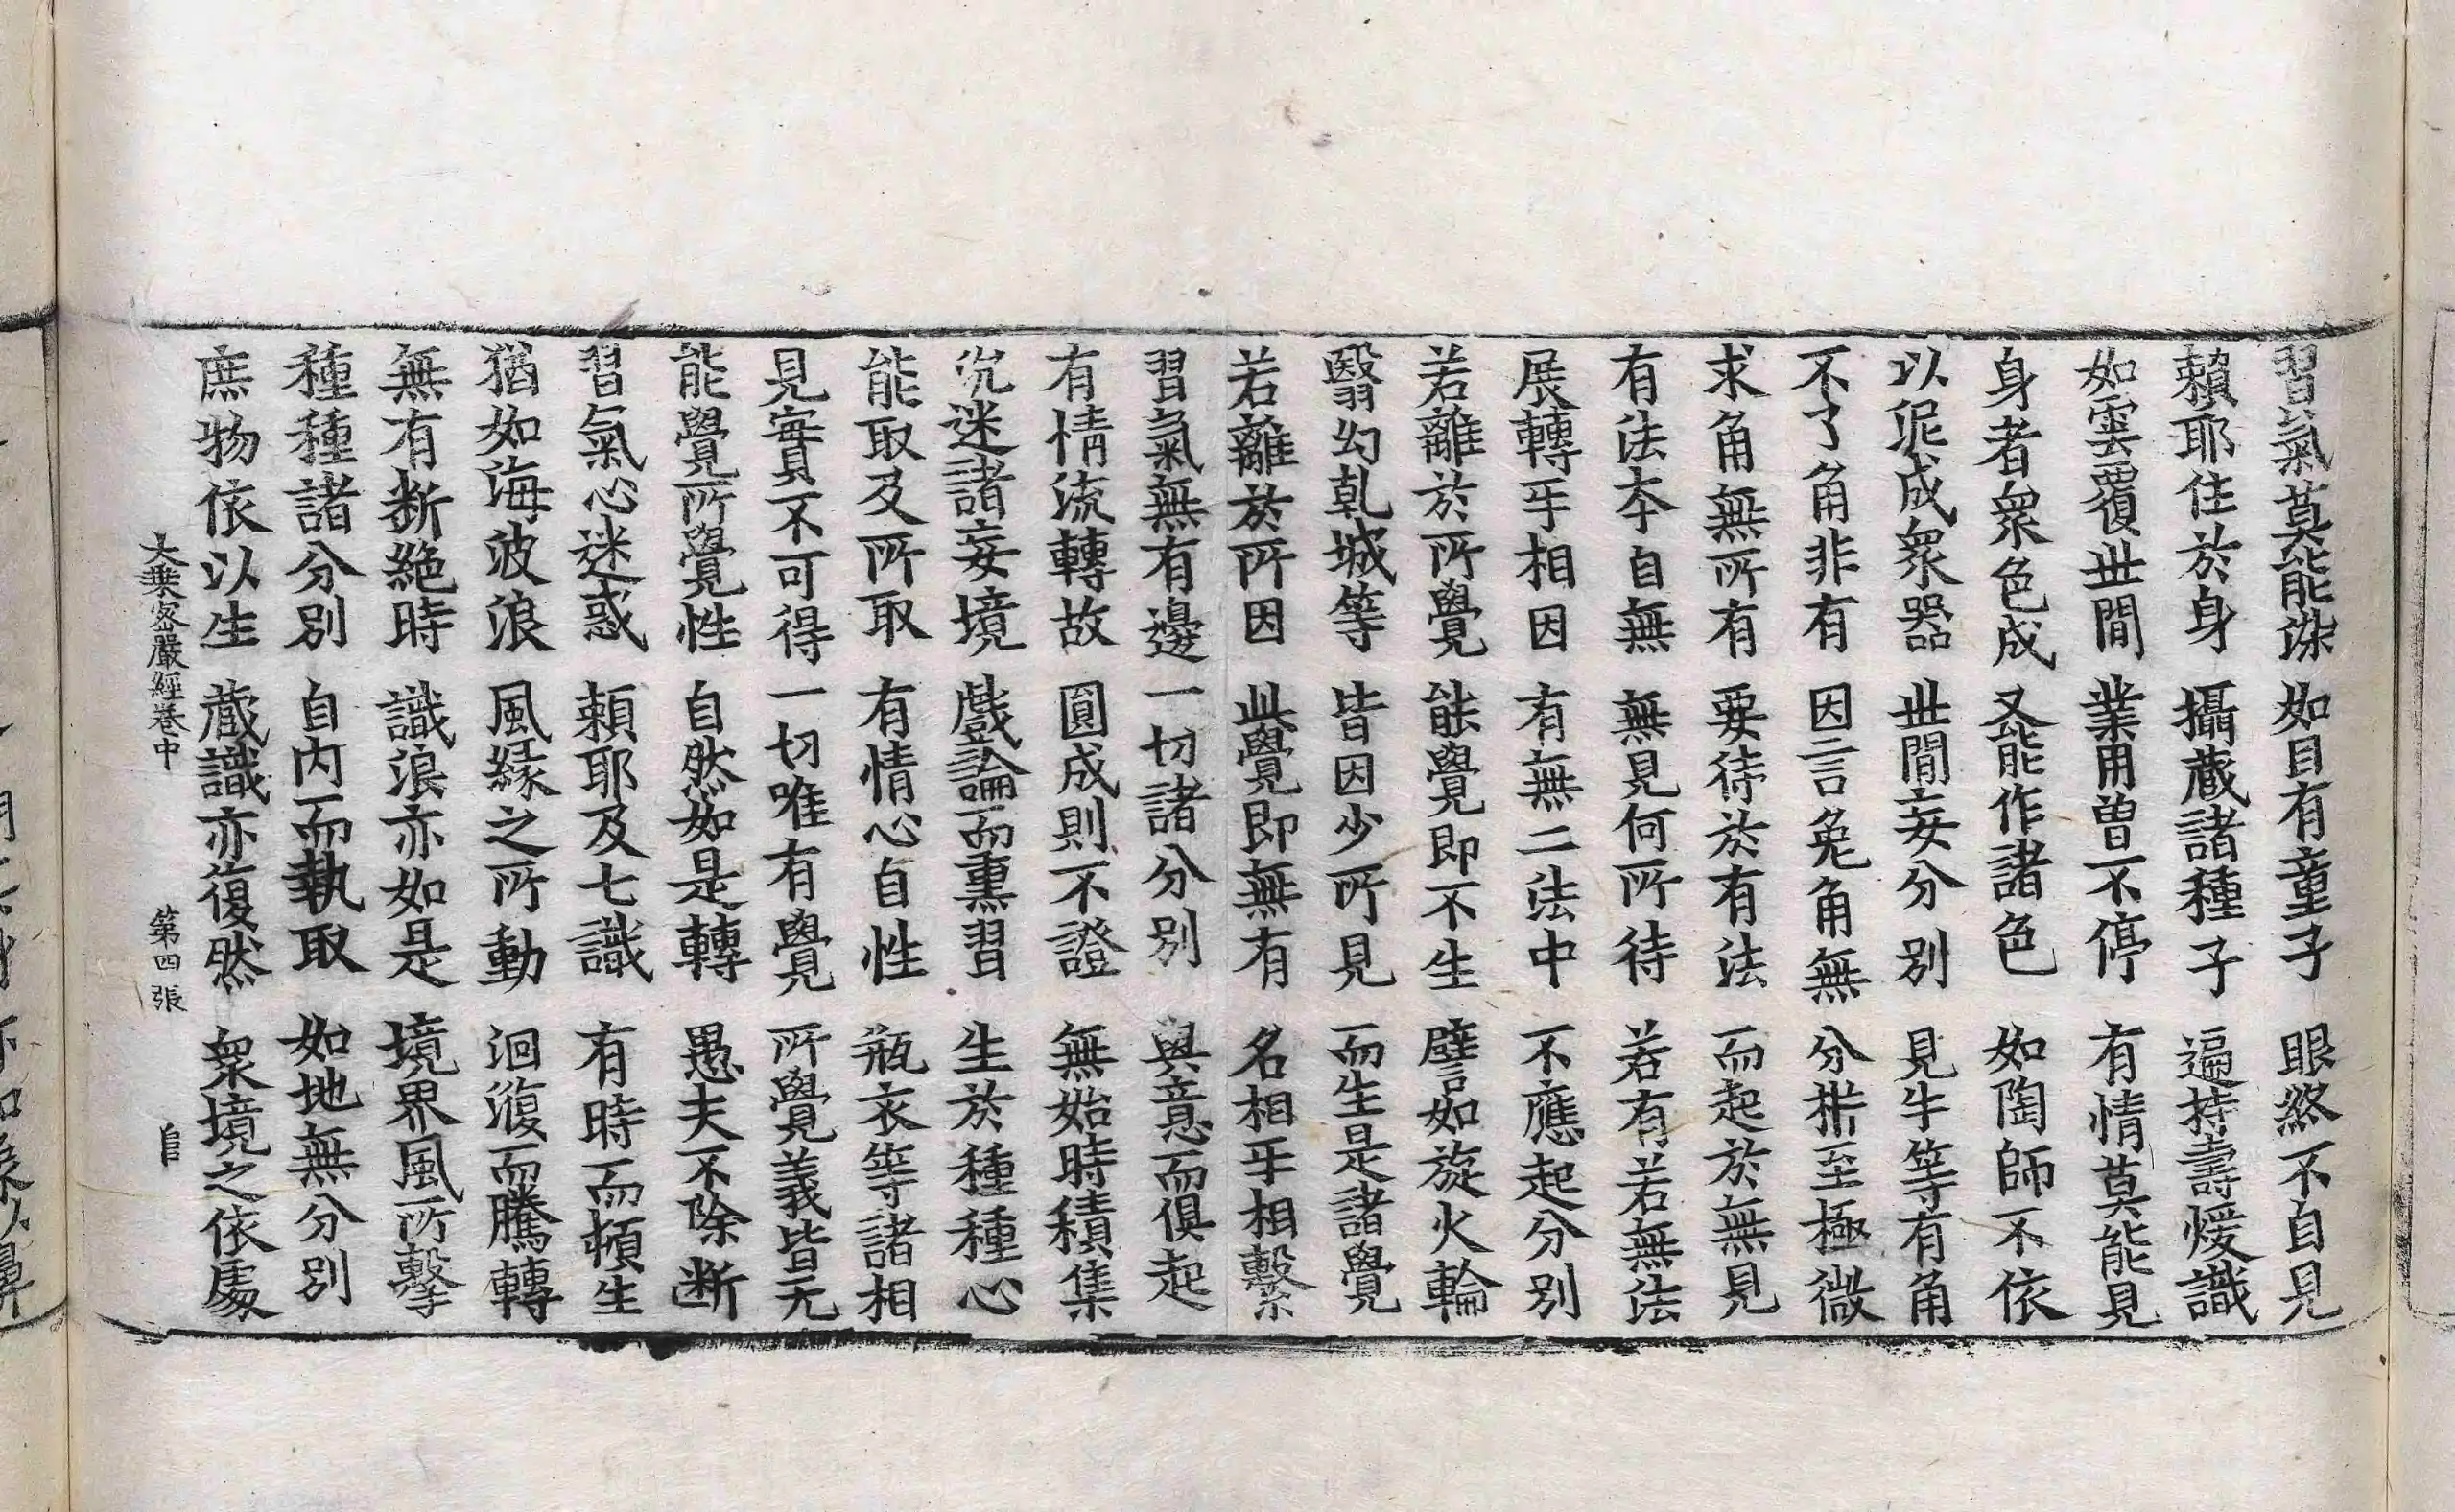 習氣莫能染　如目有童子　眼終不自見
賴耶住於身　攝藏諸種子　遍持壽煖識
如雲覆世間　業用曾不停　有情莫能見
身者衆色成　又能作諸色　如陶師不依
以泥成衆器　世間妄分別　見牛等有角
不了角非有　因言兔角無　分析至極微
求角無所有　要待於有法　而起於無見
有法本自無　無見何所待　若有若無法
展轉㸦相因　有無二法中　不應起分別
若離於所覺　能覺即不生　譬如旋火輪
翳幻乹城等　皆因少所見　而生是諸覺
若離於所因　此覺即無有　名相㸦相繫
習氣無有邊　一切諸分別　與意而俱起
有情流轉故　圓成則不證　無始時積集
沉迷諸妄境　戲論而熏習　生於種種心
能取及所取　有情心自性　瓶衣等諸相
見實不可得　一切唯有覺　所覺義皆无
能覺所覺性　自然如是轉　愚夫不除断
習氣心迷惑　賴耶及七識　有時而頓生
猶如海波浪　風緣之所動　洄澓而騰轉
無有断絶時　識浪亦如是　境界風所擊
種種諸分別　自内而執取　如地無分別
庶物依以生　藏識亦復然　衆境之依處
大乗密嚴經卷中　第四張